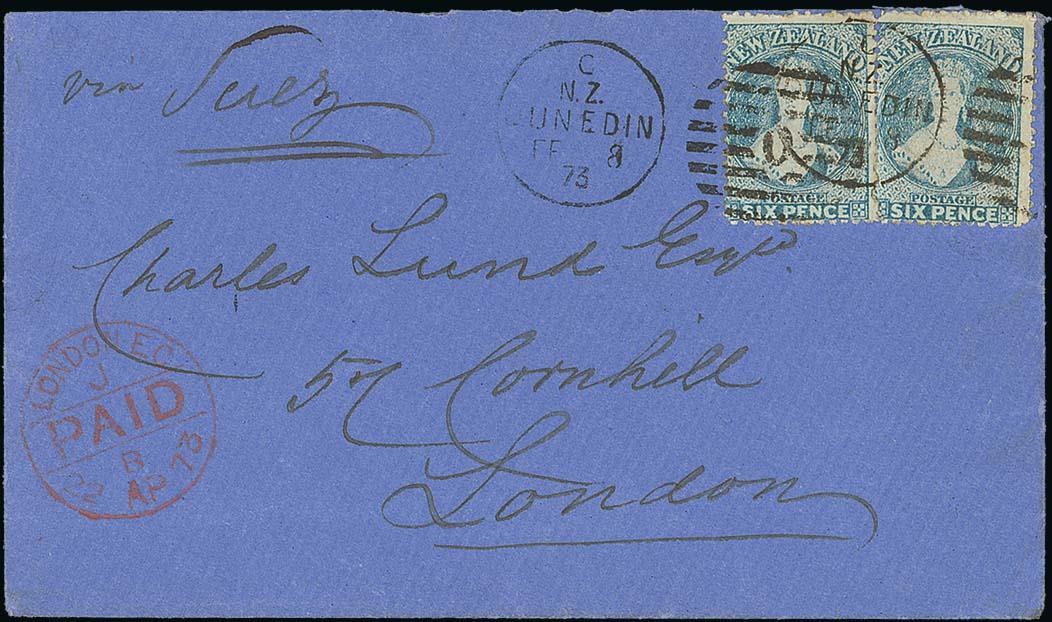 via Suez
C
N.Z.
DUNEDIN
FE 8
73
NEW ZEALAND
POSTAGE
SIX PENCE
NEW ZEALAND
POSTAGE
SIX PENCE
C
N.Z.
DUNEDIN
FE 8
73
Charles Lund Esqr.
57 Cornhill
London
LONDON E.C
J
PAID
B
AP 73